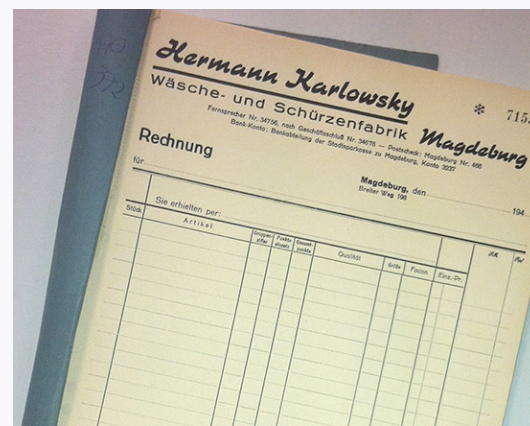 Hermann Karlowsky
Wäsche- und Schürzenfabrik Magdeburg
Fernsprecher Nr. 34756, nach Geschäftsschluß Nr. 34675 — Postscheck: Magdeburg Nr. 466
Bank-Konto: Bankabteilung der Stadtsparkasse zu Magdeburg, Konto 3237
Rechnung
Magdeburg, den 194
Breiter Weg 198
für
Sie erhielten per:
Stück Artikel Gruppen-ziffer Punkte einzeln Gesamt-punkte Qualität Größe Facon Einz.-Pr. RM Rpf